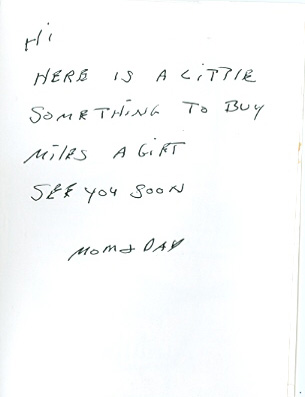 Hi
HERE IS A LITTLE
SOMETHING TO BUY
MILES A GIFT
SEE YOU SOON
MOM & DAD